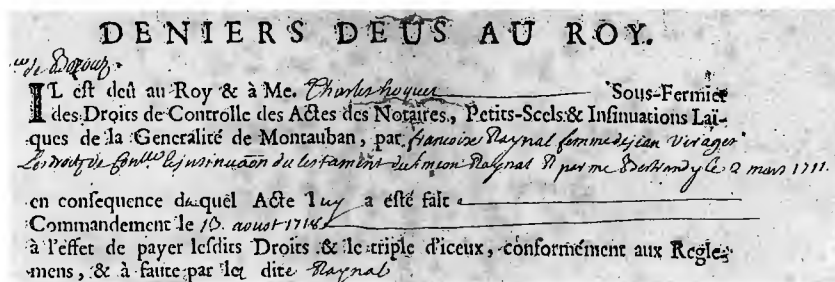 DENIERS DEUS AU ROY.
IL est deû au Roy & à Me. Charles hoquer Sous-Fermier
des Droits de Controlle des Actes des Notaires, Petits-Scels & Insinuations Laï-
ques de la Generalité de Montauban, par francoise Raynal femme de jean Virages
Les droitz de Conlle & insinuaõn du testament de Raynal par me Bertrandy le 2 mars 1711.
en consequence duquel Acte luy a esté fait
Commandement le 13. aoust 1718
à l'effet de payer lesdits Droits & le triple d'iceux, conformément aux Regle-
mens, & à faute par lad dite Raynal